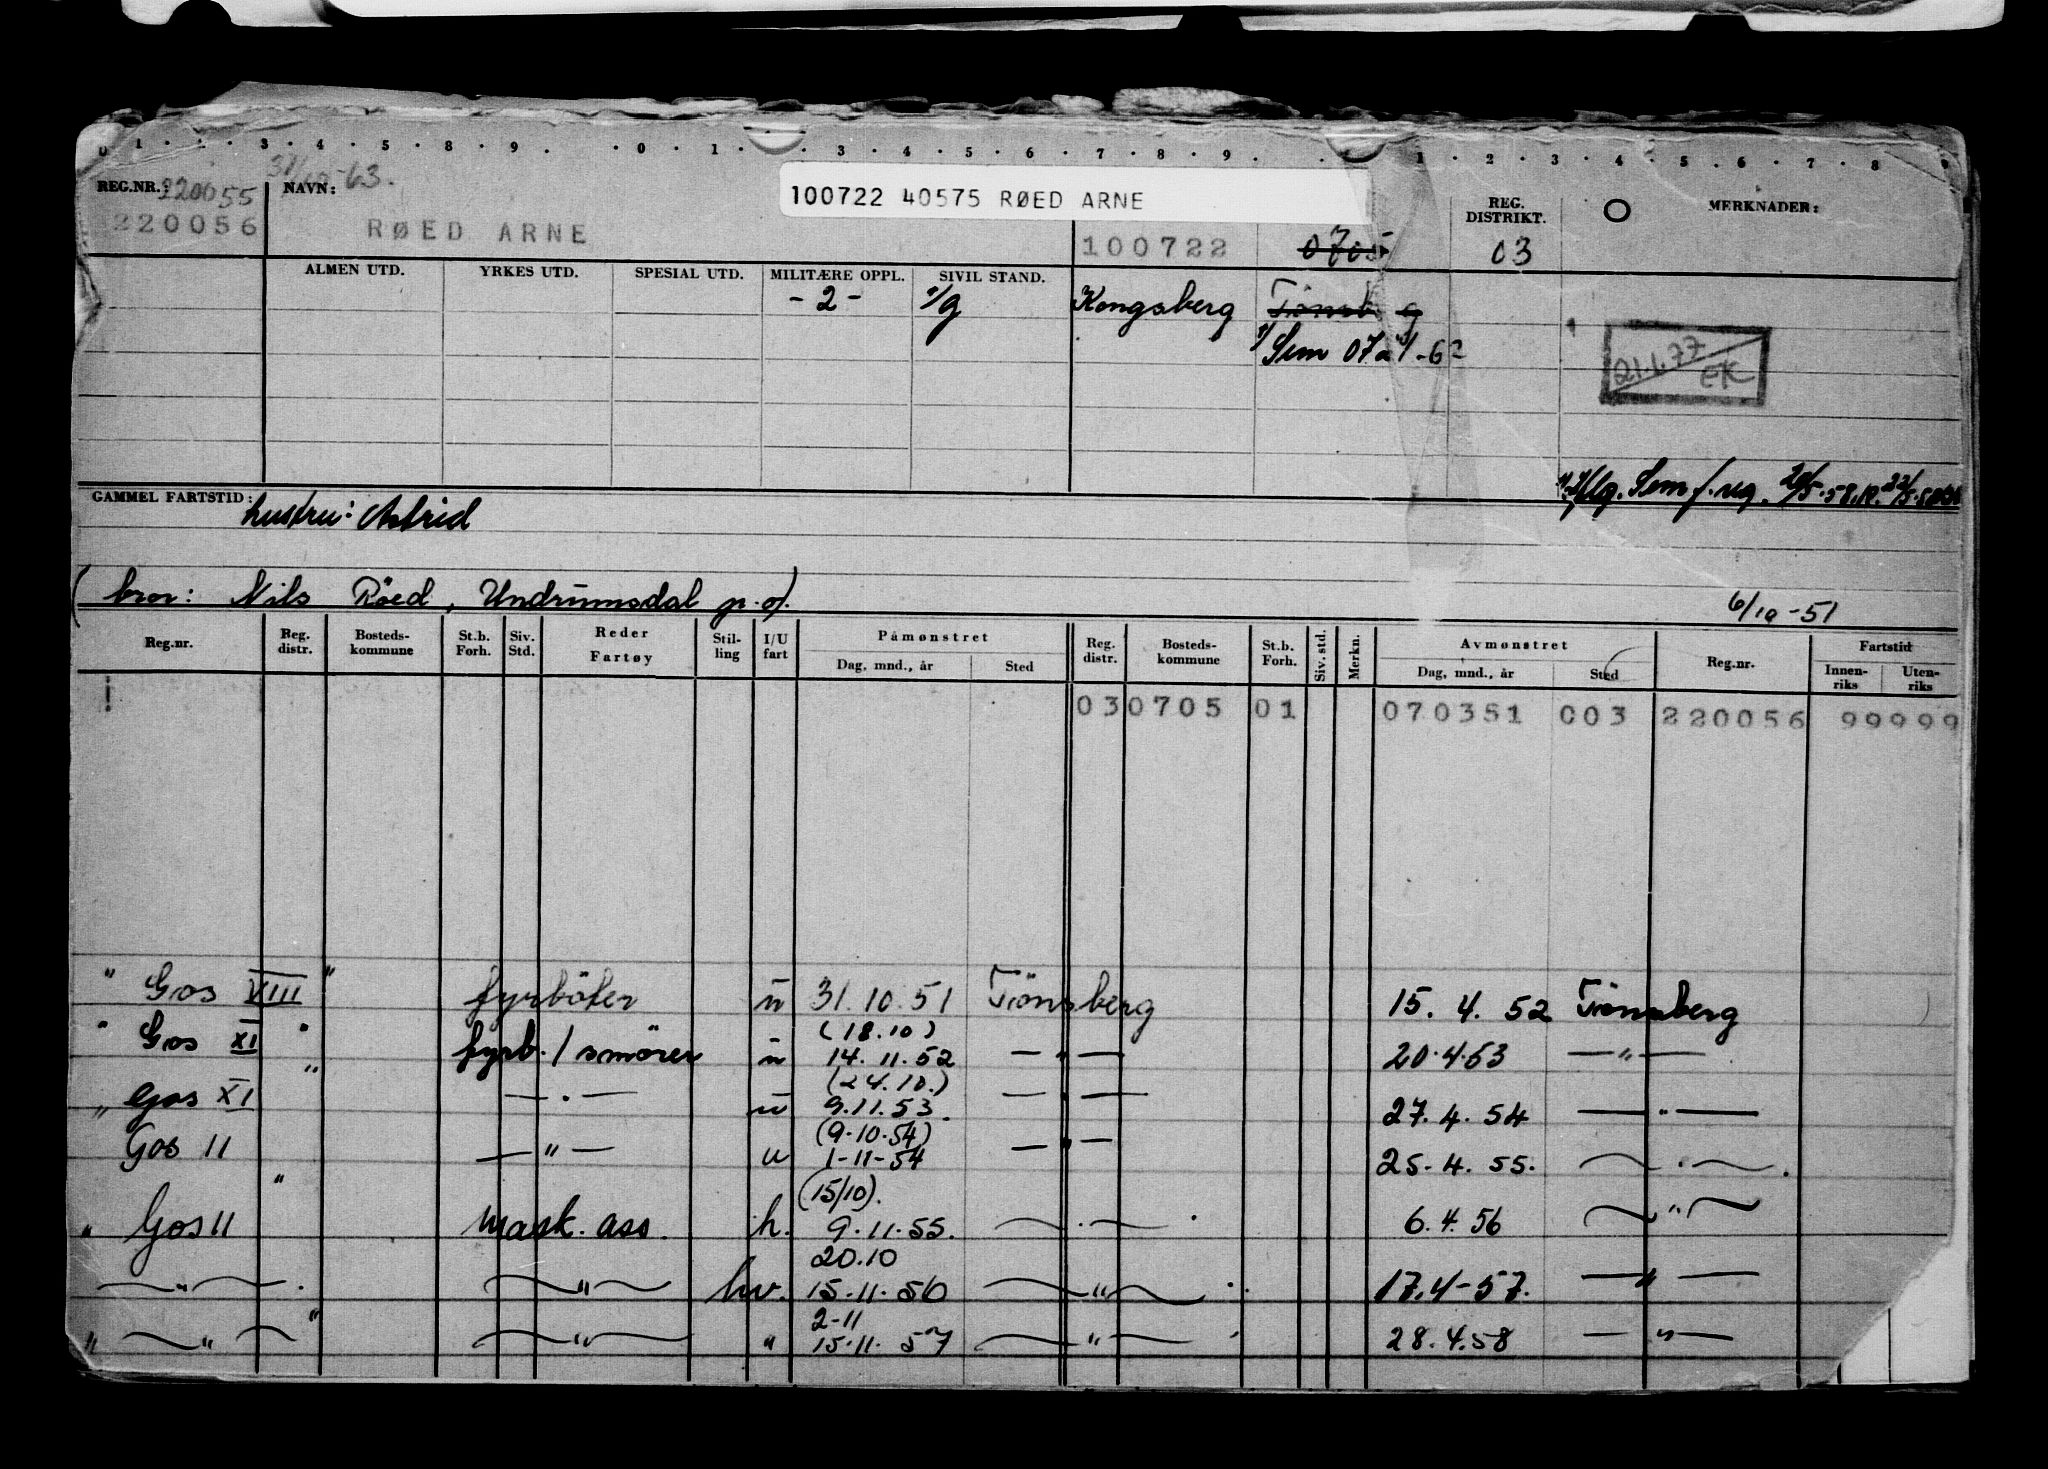 0 1 2 3 4 5 8 9 0 1 3 4 5 6 7 8 9 1 2 3 4 5 6 7 8 9
31/10-63.
REG.NR. 220055 NAVN: 100722 40575 RØED ARNE REG. DISTRIKT. O MERKNADER:
220056 RØED ARNE 100722 0705 03
ALMEN UTD. YRKES UTD. SPESIAL UTD. MILITÆRE OPPL. SIVIL STAND.
- 2 - /g Kongsberg Tönsb g
Sem 07 1-62
21.1.77
EK
GAMMEL FARTSTID: hustru: Astrid flg. Sem f. reg. 20/5-58
(bror: Nils Röed, Undrumsdal p.o). 6/10-51
Reg.nr. Reg. distr. Bosteds- kommune St.b. Forh. Siv. Std. Reder Fartøy Stil- ling I/U fart Påmønstret Dag, mnd., år Sted Reg. distr. Bosteds- kommune St.b. Forh. Siv. std. Merkn. Avmønstret Dag, mnd., år Sted Reg.nr. Fartstid Innen- riks Uten- riks
03 0705 01 070351 003 220056 99999
" Gos VIII " fyrböter u 31.10.51 Tönsberg 15. 4. 52 Tönsberg
(18.10)
" Gos XI " fyrb. / smörer u 14.11.52 — " — 20.4.53 — " —
(24.10.)
" Gos XI " — " — u 9.11.53 — " — 27. 4. 54 — " —
(9.10.54)
Gos 11 — " — u 1-11-54 — " — 25. 4. 55. — " —
(15/10).
" Gos 11 " mask. ass. h. 9.11.55. — " — 6. 4. 56 — " —
20.10
— " — hv. 15.11.56 — " — 17.4-57. — " —
2-11
" — " — " — " — " 15.11.57 — " — 28.4.58 — " —